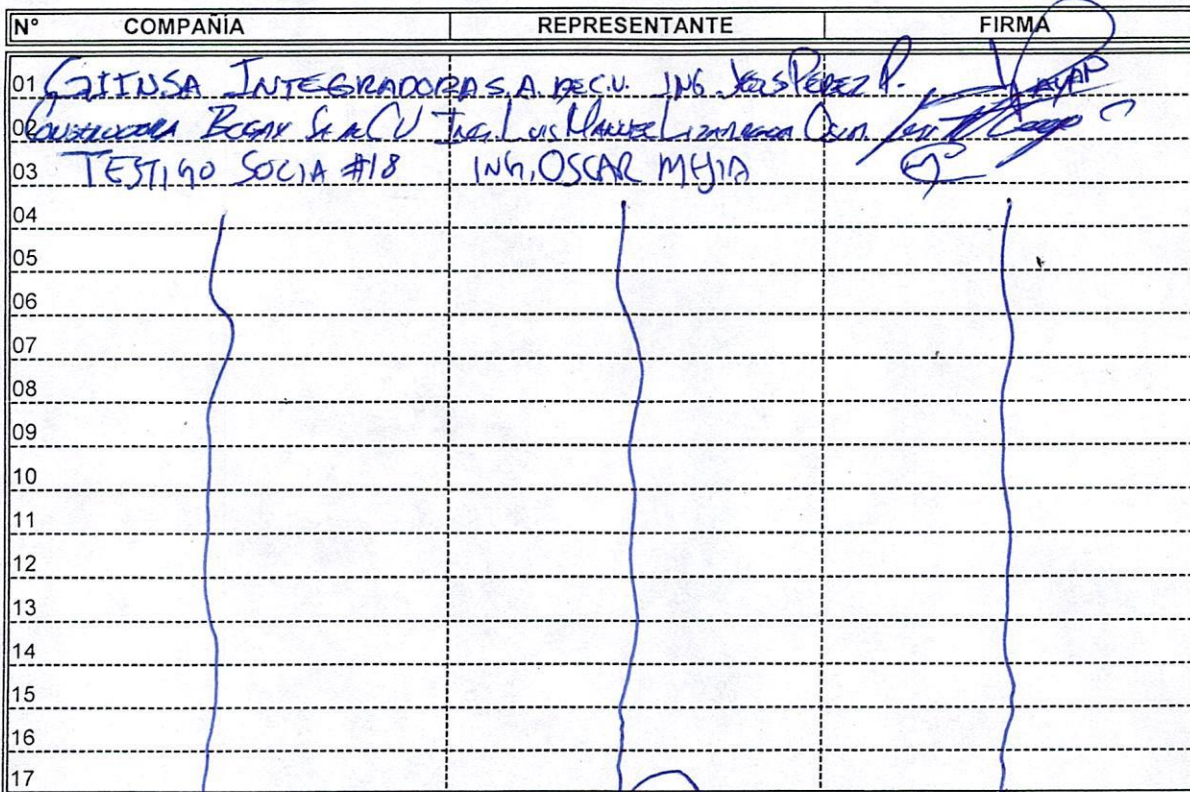 N° COMPAÑÍA REPRESENTANTE FIRMA
01 GIINSA INTEGRADORA S.A. DE C.V. ING. JESUS PEREZ P.
02 CONSTRUCTORA SA de CV ING. LUIS MANUEL LIZARRAGA
03 TESTIGO SOCIA #18 ING. OSCAR MEJIA
04
05
06
07
08
09
10
11
12
13
14
15
16
17